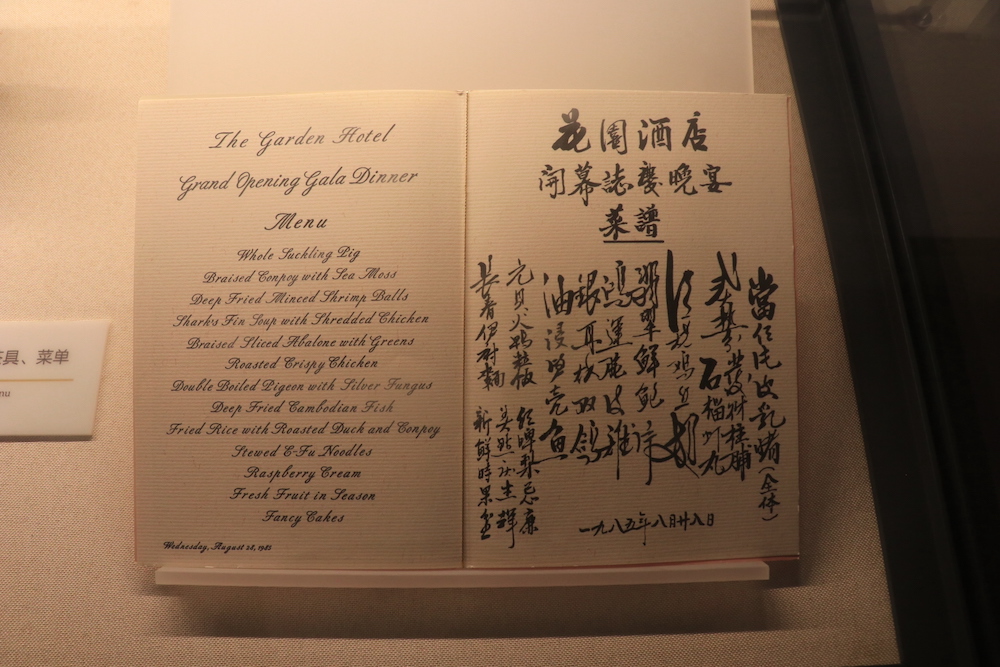 The Garden Hotel
Grand Opening Gala Dinner
Menu
Whole Suckling Pig
Braised Conpoy with Sea Moss
Deep Fried Minced Shrimp Balls
Shark's Fin Soup with Shredded Chicken
Braised Sliced Abalone with Greens
Roasted Crispy Chicken
Double Boiled Pigeon with Silver Fungus
Deep Fried Cambodian Fish
Fried Rice with Roasted Duck and Conpoy
Stewed E-Fu Noodles
Raspberry Cream
Fresh Fruit in Season
Fancy Cakes
Wednesday, August 28, 1985
花園酒店
開幕誌慶晚宴
菜譜
當红化皮乳猪(全体)
發财瑶柱脯
石榴虾丸
红烧鸡丝翅
翡翠鮮鮑片
鴻運脆皮雞
銀耳炖双鴿
油浸笋壳魚
元貝火鴨粒飯
長春伊府麵
梨忌廉
美點
新鮮時果盆
一九八五年八月廿八日
具、菜单
nu